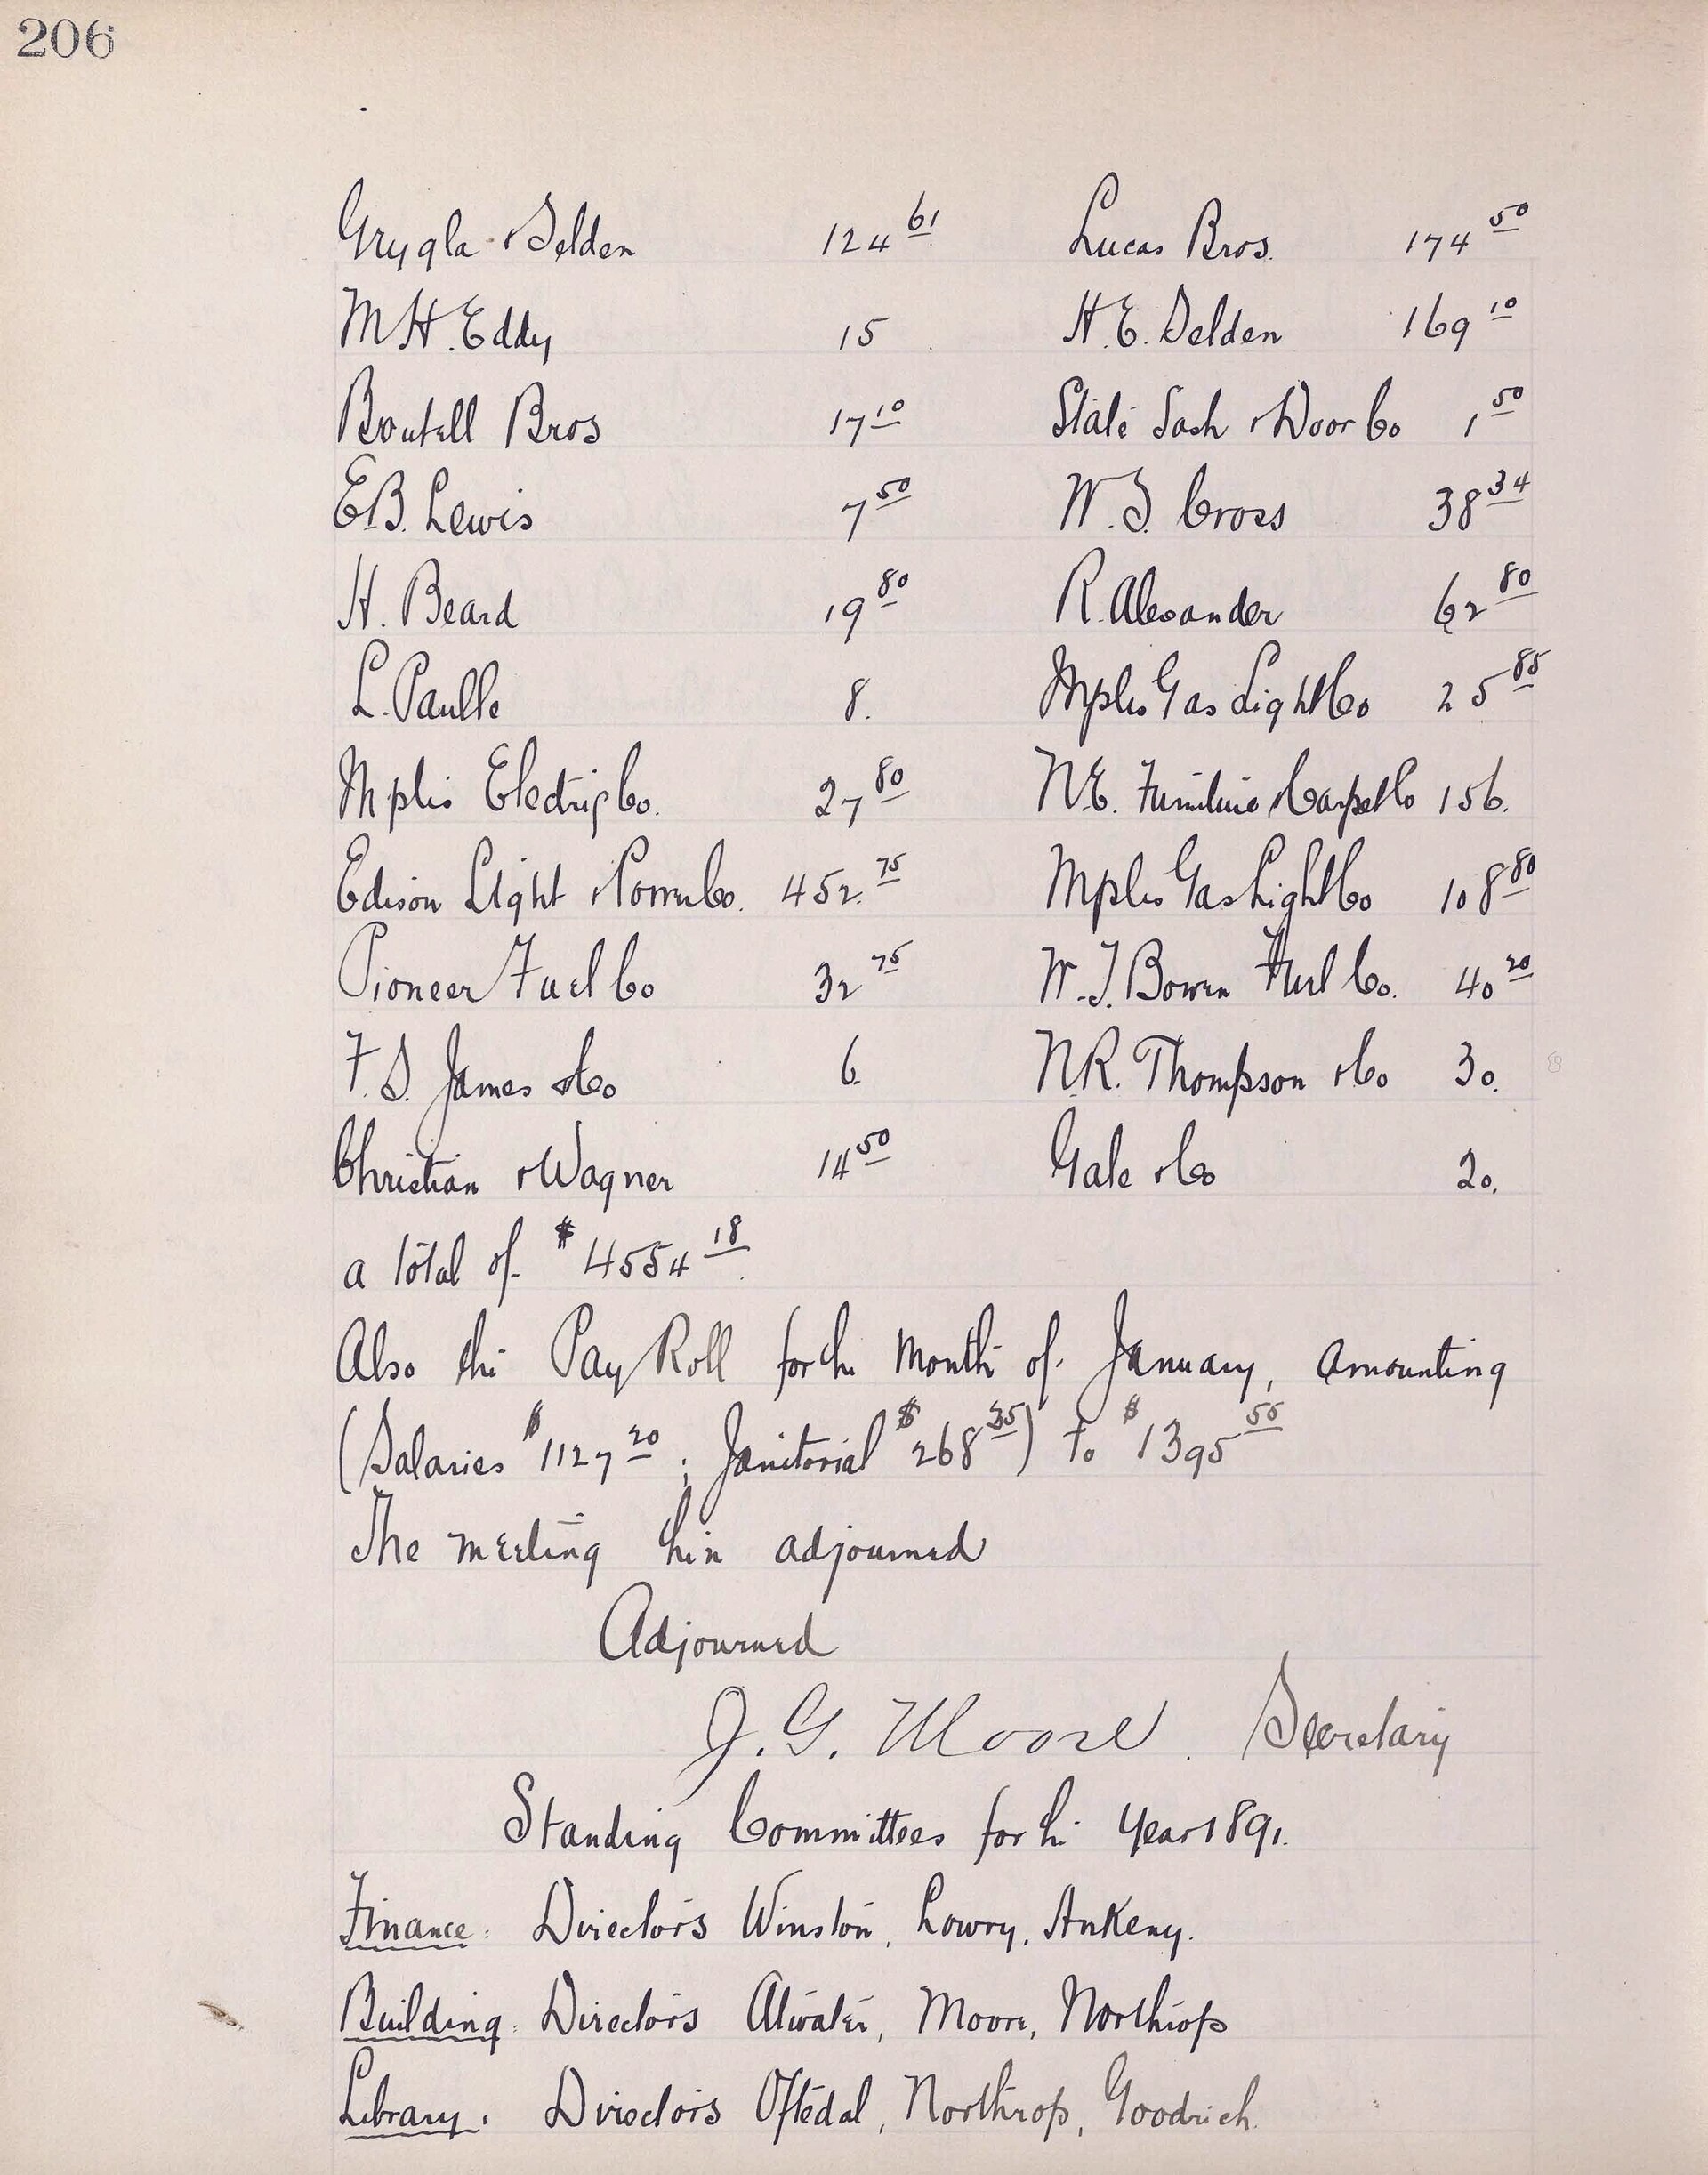 206
Grygla & Selden 124 61 Lucas Bros. 174 50
M H. Eddy 15 H. E. Selden 169 10
Boutell Bros 17 10 State Sash & Door Co 1 50
E B. Lewis 7 50 W. S. Cross 38 34
H. Beard 19 80 R. Alexander 62 80
L. Paulle 8. Mpls Gas Light Co 25 85
Mpls Electric Co. 27 80 N E. Furniture & Carpet Co 156.
Edison Light & Power Co. 452. 75 Mpls Gas Light Co 108 80
Pioneer Fuel Co 32 75 W. J. Bowen Fuel Co. 40 20
F. S. James & Co 6. N. R. Thompson & Co 30.
Christian & Wagner 14 50 Gale & Co 20.
a total of $ 4554 18.
Also the Pay Roll for the month of January, amounting
(Salaries $1127 20; Janitorial $268 35) to $1395 55
The meeting then adjourned
Adjourned
J. G. Moore. Secretary
Standing Committees for the Year 1891.
Finance: Directors Winston, Lowry, Ankeny.
Building: Directors Atwater, Moore, Northrop
Library: Directors Oftedal, Northrop, Goodrich.